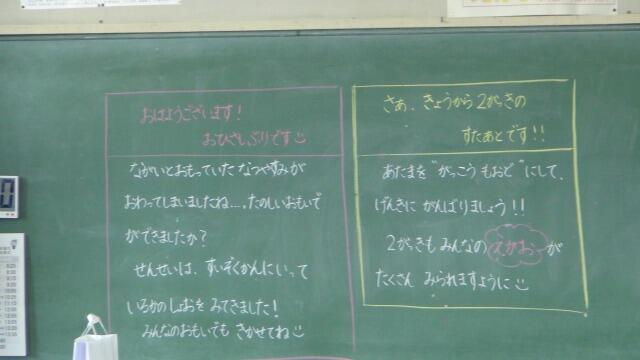 おはようございます!
おひさしぶりです
ながいとおもっていた なつやすみが
おわってしまいましたね…。たのしいおもいで
ができましたか?
せんせいは、すいぞくかんにいって
いるかのしょおを みてきました!
みんなのおもいでも きかせてね
さあ、きょうから2がっきの
すたあとです!!
あたまを "がっこう もおど" にして、
げんきに がんばりましょう!!
2がっきも みんなの えがお が
たくさん みられますように